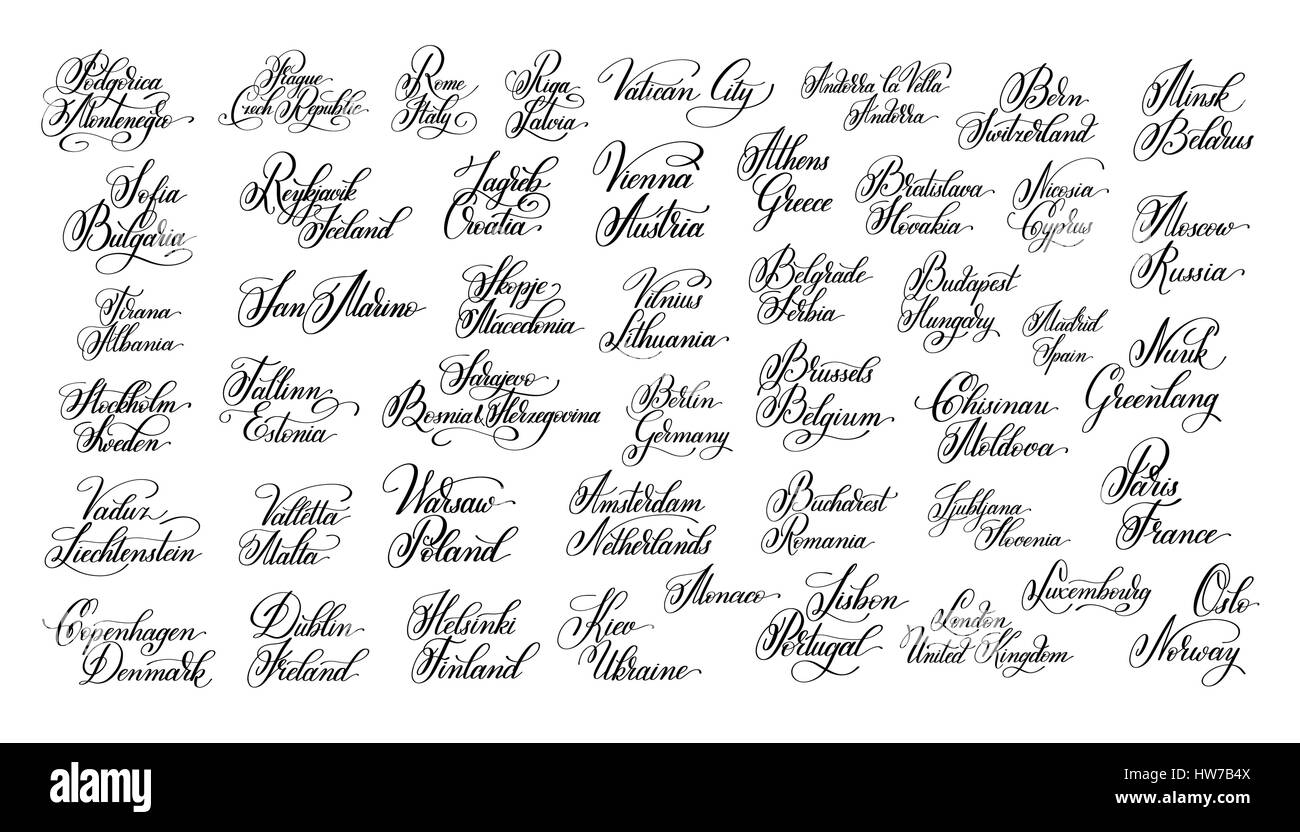 Podgorica
Montenegro
Prague
Czech Republic
Rome
Italy
Riga
Latvia
Vatican City
Andorra la Vella
Andorra
Bern
Switzerland
Minsk
Belarus
Sofia
Bulgaria
Reykjavik
Iceland
Zagreb
Croatia
Vienna
Austria
Athens
Greece
Bratislava
Slovakia
Nicosia
Cyprus
Moscow
Russia
Tirana
Albania
San Marino
Skopje
Macedonia
Vilnius
Lithuania
Belgrade
Serbia
Budapest
Hungary
Madrid
Spain
Nuuk
Greenlang
Stockholm
Sweden
Tallinn
Estonia
Sarajevo
Bosnia & Herzegovina
Berlin
Germany
Brussels
Belgium
Chisinau
Moldova
Vaduz
Liechtenstein
Valletta
Malta
Warsaw
Poland
Amsterdam
Netherlands
Bucharest
Romania
Ljubljana
Slovenia
Paris
France
Copenhagen
Denmark
Dublin
Ireland
Helsinki
Finland
Kiev
Ukraine
Monaco
Lisbon
Portugal
London
United Kingdom
Luxembourg
Oslo
Norway
alamy stock photo
HW7B4X
www.alamy.com